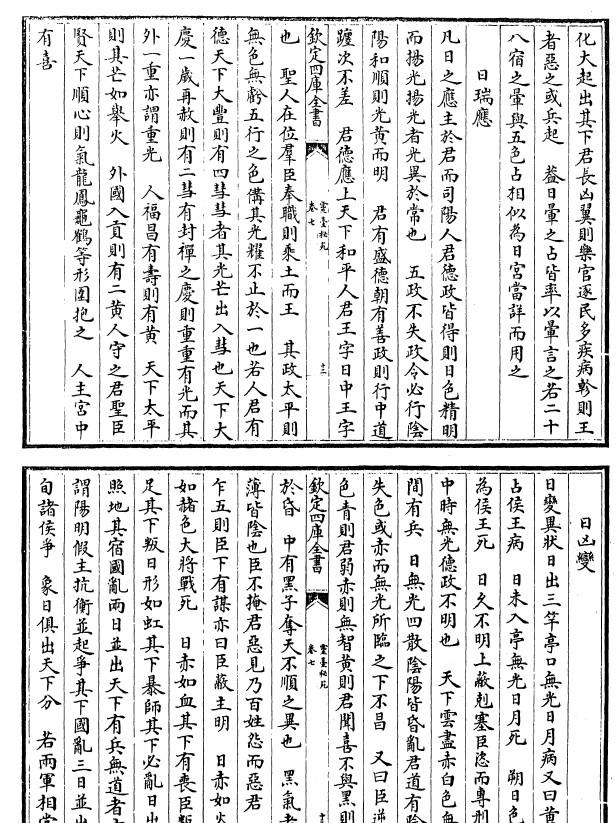 化大起出其下君長凶翼則樂官逐民多疾病軫則王
者惡之或兵起　葢日暈之占皆率以暈言之若二十
八宿之暈與五色占相似為日宮當詳而用之
日瑞應
凡日之應主於君而司陽人君德政皆得則日色精明
而揚光揚光者光異於常也　五政不失政令必行陰
陽和順則光黃而明　君有盛德朝有善政則行中道
躔次不差　君德應上天下和平人君王字日中王字
欽定四庫全書
靈臺秘苑
卷七
十二
也　聖人在位羣臣奉職則乘土而王　其政太平則
無色無虧五行之色備其光耀不止於一也若人君有
德天下大豐則有四彗彗者其光芒出入彗也天下大
慶一歲再赦則有二彗有封禪之慶則重重有光而其
外一重亦謂重光　人福昌有壽則有黃　天下太平
則其芒如舉火　外國入貢則有二黃人守之君聖臣
賢天下順心則氣龍鳳龜鶴等形圍抱之　人主宮中
有喜
日凶變
日變異狀日出三竿亭口無光日月病又曰黃
占侯王病　日未入亭無光日月死　朔日色
為侯王死　日久不明上蔽剋塞臣恣而專刑
中時無光德政不明也　天下雲盡赤白色無
間有兵　日無光四散陰陽皆昏亂君道有陰
失色或赤而無光所臨之下不昌　又曰臣逆
色青則君弱赤則無智黃則君聞喜不與黑則
欽定四庫全書
靈臺秘苑
卷七
於昏　中有黑子奪天不順之異也　黑氣者
薄皆陰也臣不掩君惡見乃百姓怨而惡君
乍五則臣下有謀亦曰臣蔽主明　日赤如火
如赭色大將戰死　日赤如血其下有喪臣叛
足其下叛日形如虹其下暴師其下必亂日出
照地其宿國亂兩日並出天下有兵無道者
謂陽明假主抗衡並起爭其下國亂三日並出
旬諸侯爭　象日俱出天下分　若兩軍相當